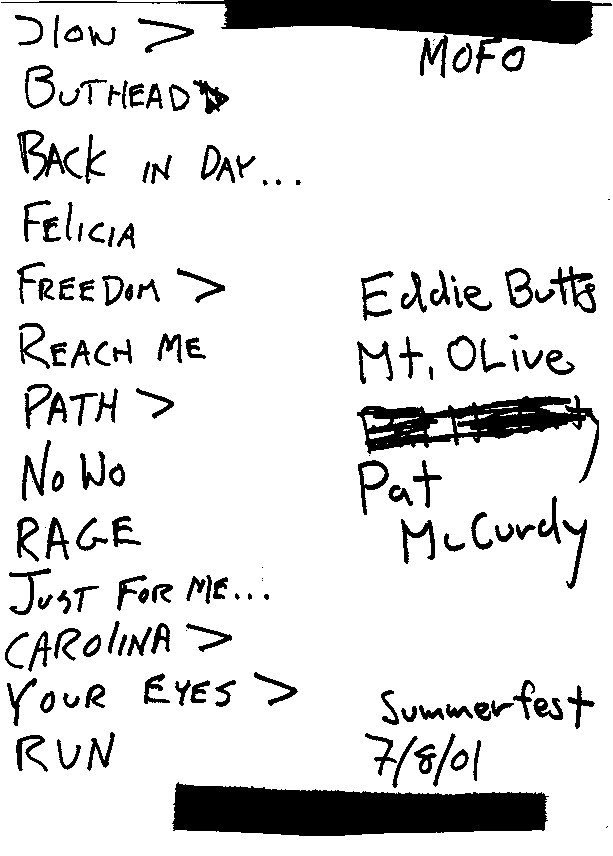 Slow >
MOFO
BUTHEAD
BACK IN DAY...
FELICIA
FREEDOM >
Eddie Butts
REACH ME
Mt. OLive
PATH >
NO WO
Pat
McCurdy
RAGE
JUST FOR ME...
CAROLINA >
YOUR EYES >
Summerfest
RUN
7/8/01